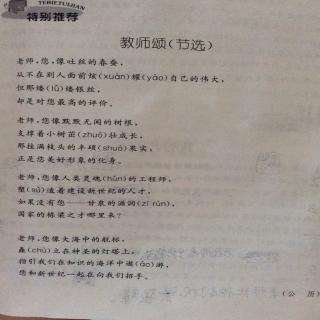 TEBIETUIJIAN
特别推荐
教师颂(节选)
老师,您,像吐丝的春蚕,
从不在别人面前炫(xuàn)耀(yào)自己的伟大,
但那缕(lǚ)缕银丝,
却是对您最高的评价。
老师,您像默默无闻的树根,
支撑着小树茁(zhuó)壮成长,
那挂满枝头的丰硕(shuò)果实,
正是您美好形象的化身。
老师,您像人类灵魂(hún)的工程师,
塑(sù)造着建设新世纪的人才,
如果没有您——甘泉的滋润(zī rùn),
国家的栋梁之才哪里来?
老师,您像大海中的航标,
矗(chù)立在神圣的灯塔上,
指引我们在知识的海洋中遨(áo)游,
您和新世纪一起在向我们招手。
(公 历)